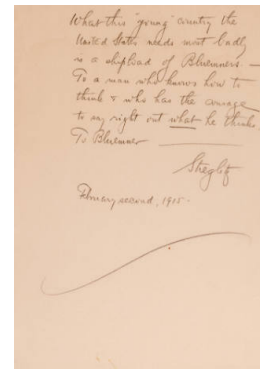 What this "young" country the
United States needs most badly
is a shipload of Bluemners. —
To a man who knows how to
think & who has the courage
to say right out what he thinks.
To Bluemner
Stieglitz
February second, 1915.